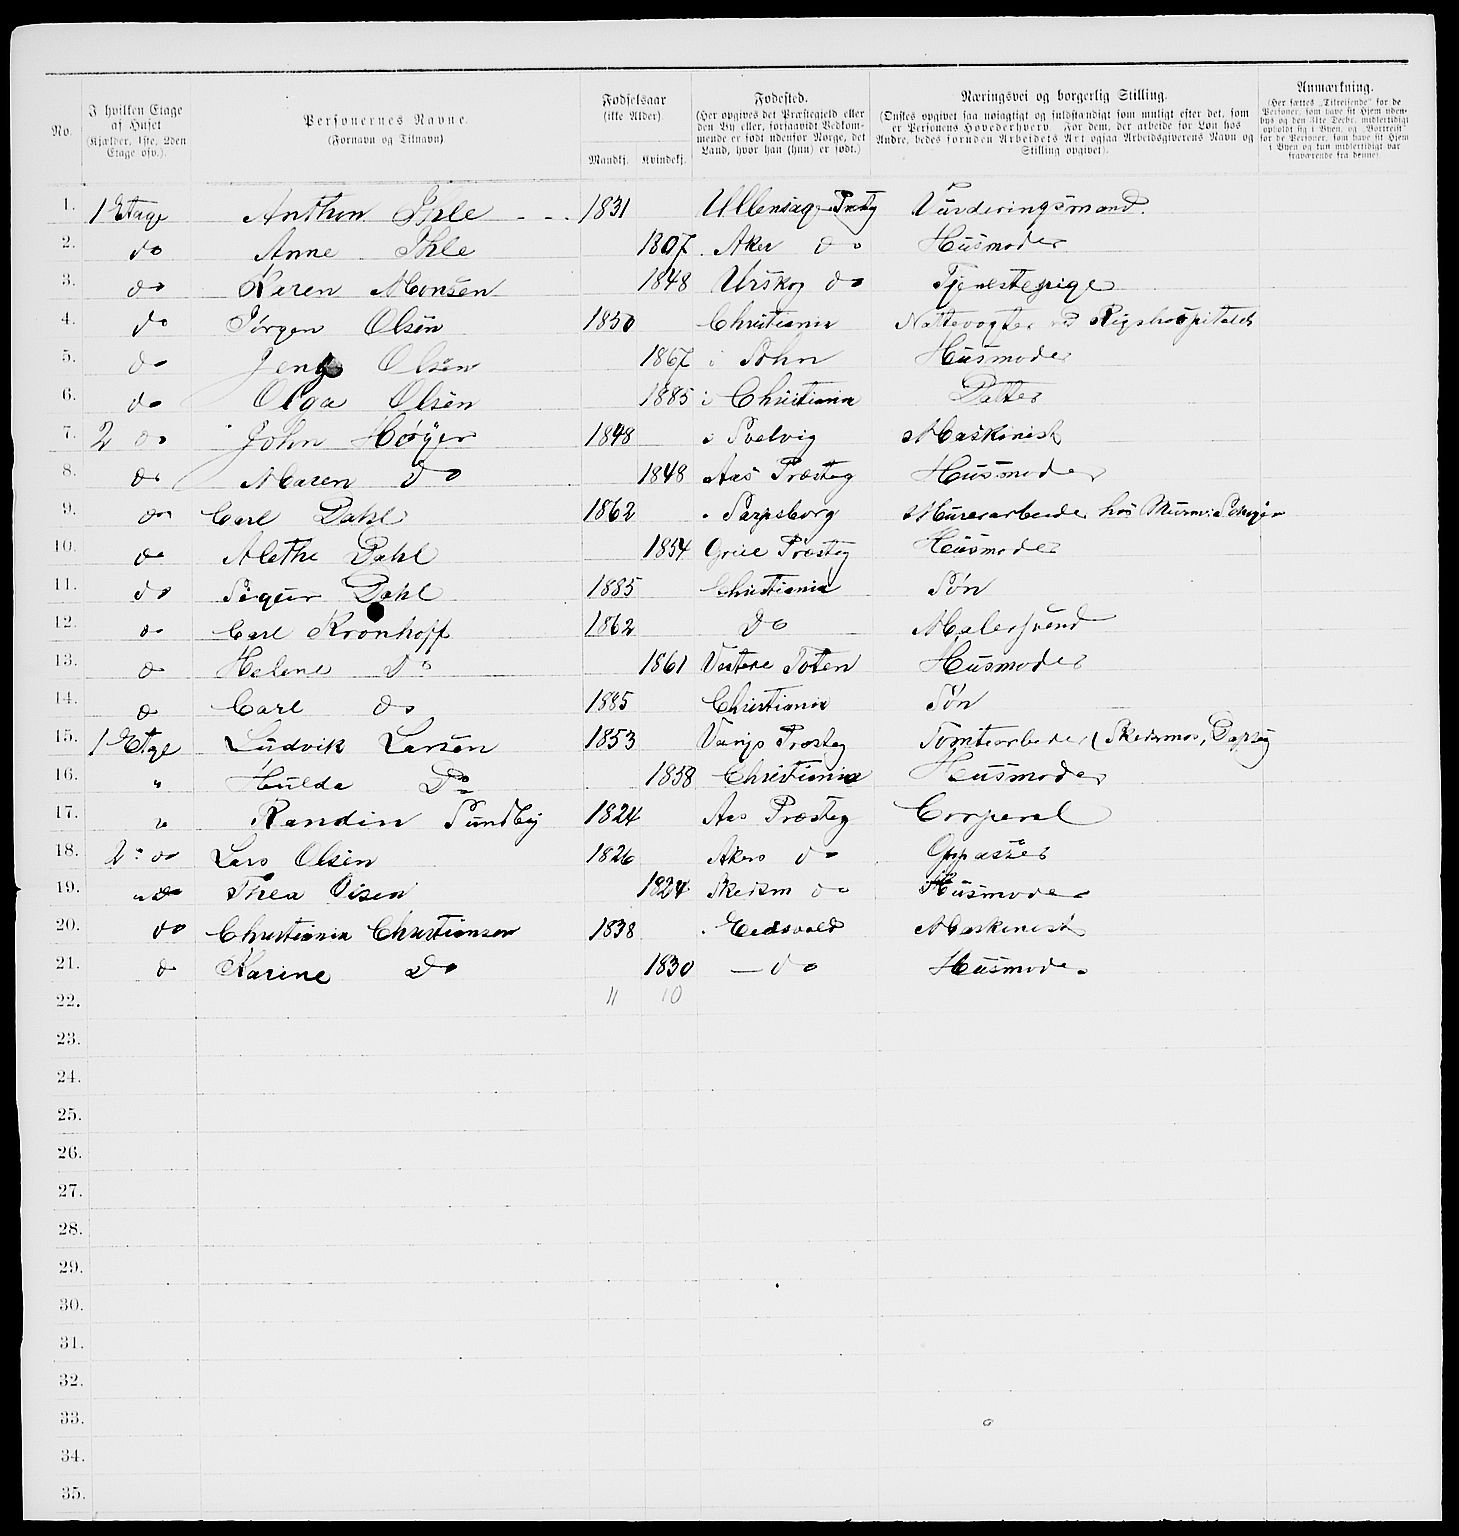 No. | I hvilken Etage af Huset (Kjælder, 1ste, 2den Etage osv.). | Personernes Navne. (Fornavn og Tilnavn) | Fødselsaar (ikke Alder) Mandkj. | Kvindekj. | Fødested. (Her opgives det Præstegjeld eller den By eller, forsaavidt Vedkommende er født udenfor Norge, det Land, hvor han (hun) er født.) | Næringsvei og borgerlig Stilling. (Ønskes opgivet saa nøiagtigt og fuldstændigt som muligt efter det, som er Personens Hovederhverv. For dem, der arbeide for Løn hos Andre, bedes foruden Arbeidets Art ogsaa Arbeidsgiverens Navn og Stilling opgivet). | Anmærkning. (Her sættes „Tilreisende" for de Personer, som have sit Hjem udenbys og den 31te Decbr. midlertidigt opholdt sig i Byen, og „Bortreist" for de Personer, som have sit Hjem i Byen og kun midlertidigt var fraværende fra denne)
1. 1 Etage Anthon Ihle 1831 Ullensag Præstg Vurderingsmand.
2. do Anne Ihle 1807 Aker do Husmoder
3. do Karen Monsen 1848 Urskog do Tjenestepige
4. do Jørgen Olsen 1850 Christiania Nattevogter Rigshospitalet
5. do Olsen 1867 i Husmoder
6. do Olga Olsen 1885 i Christiania Datter
7. 2 do John 1848 Svelvig Maskinist
8. do Maren do 1848 Aas Præsteg Husmoder
9. do Carl Dahl 1862 Sarpsborg Murerarbeide hos
10. do Alethe Dahl 1854 Grue Præsteg Husmoder
11. do Sigur Dahl 1885 Christiania Søn
12. do Carl Kronhoff 1862 Do Malersvend
13. do Helene Do 1861 Vestere Toten Husmoder
14. do Carl do 1885 Christiania Søn
15. 1 Etage Ludvik Larsen 1853 Præsteg Tomtearbeider
16. " Hulda Do 1858 Christiania Husmoder
17. " Randin Sundby 1824 Aas Præsteg Corperal
18. 2 do Lars Olsen 1826 Akers do Oppasser
19. " do Thea Olsen 1824 Skeism do Husmoder
20. do Christiania Christiansen 1838 Eedsvold Maskinist
21. do Karine Do 1830 — do Husmoder
22. 11 10
23.
24.
25.
26.
27.
28.
29.
30.
31.
32.
33.
34.
35.